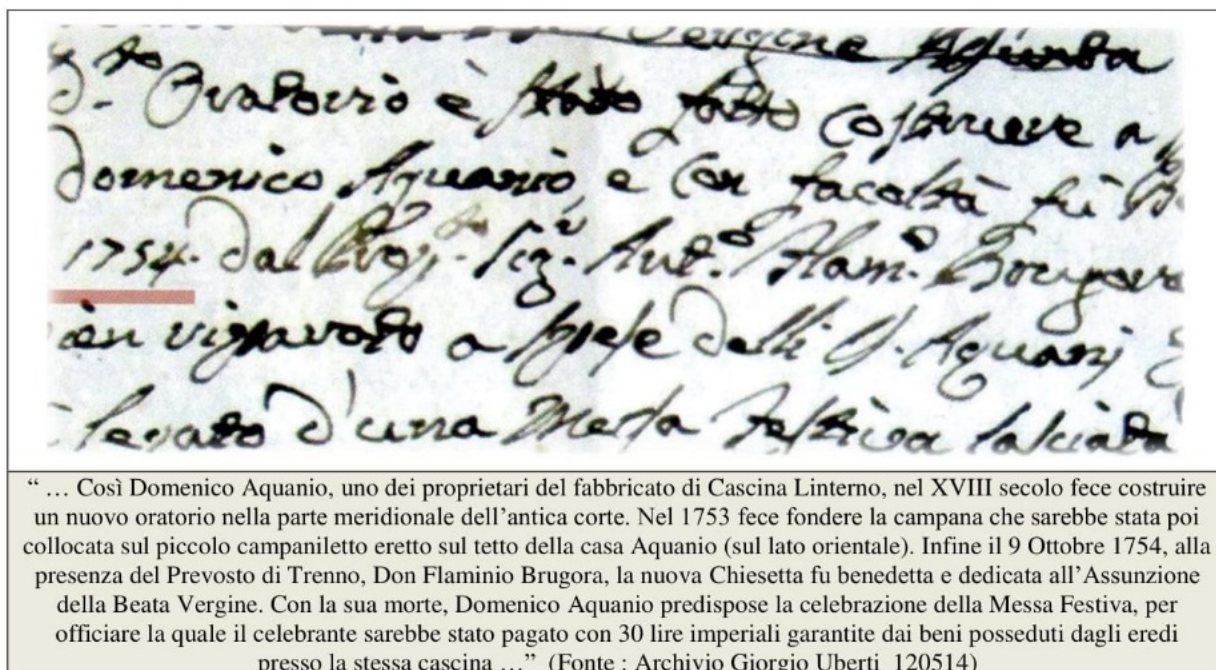 Vergine Assunta
d.to Oratorio è stato fatto costruere a
Domenico Aquanio, e con facoltà fù
1754. dal Sig.r Ant.o Flam.o
a spese delli S. Aquanj
levato d'una Messa Festiva lasciata
“ … Così Domenico Aquanio, uno dei proprietari del fabbricato di Cascina Linterno, nel XVIII secolo fece costruire
un nuovo oratorio nella parte meridionale dell’antica corte. Nel 1753 fece fondere la campana che sarebbe stata poi
collocata sul piccolo campaniletto eretto sul tetto della casa Aquanio (sul lato orientale). Infine il 9 Ottobre 1754, alla
presenza del Prevosto di Trenno, Don Flaminio Brugora, la nuova Chiesetta fu benedetta e dedicata all’Assunzione
della Beata Vergine. Con la sua morte, Domenico Aquanio predispose la celebrazione della Messa Festiva, per
officiare la quale il celebrante sarebbe stato pagato con 30 lire imperiali garantite dai beni posseduti dagli eredi
presso la stessa cascina …” (Fonte : Archivio Giorgio Uberti_120514)